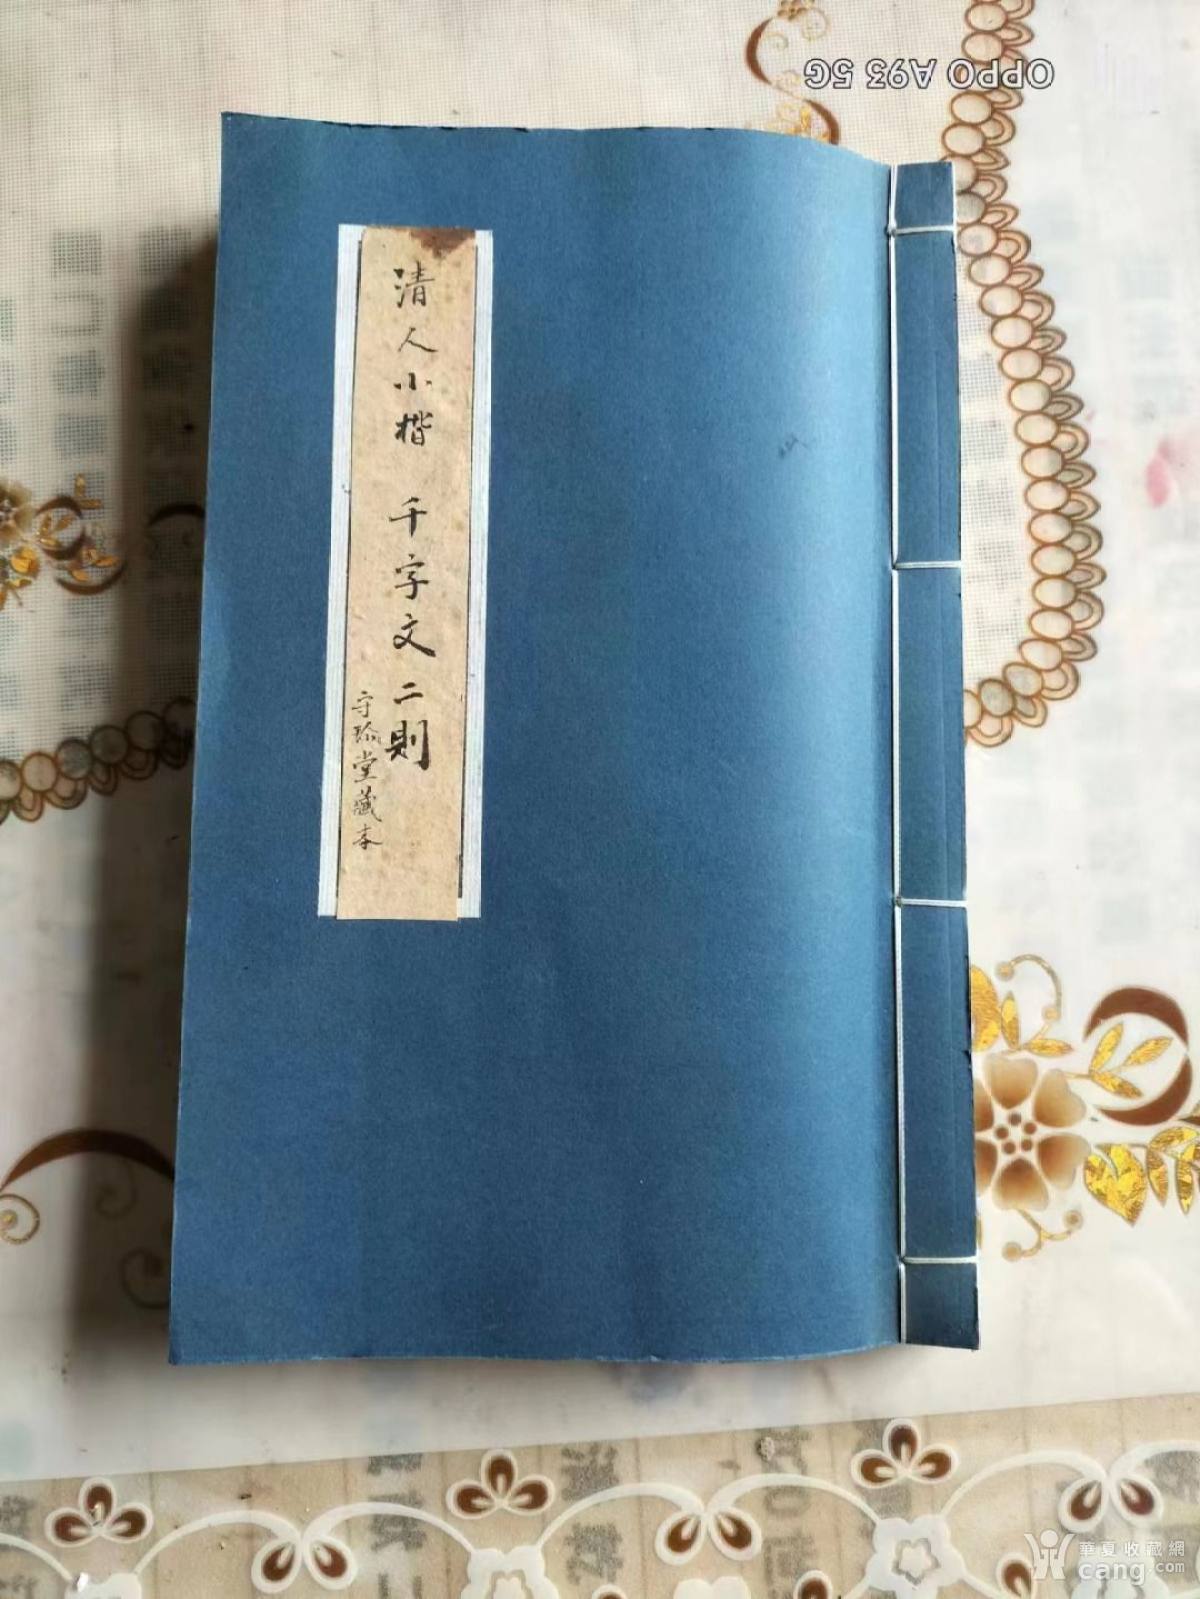 OPPO A93 5G
清人小楷 千字文二則
守瑜堂藏本
華夏收藏網
cang.com